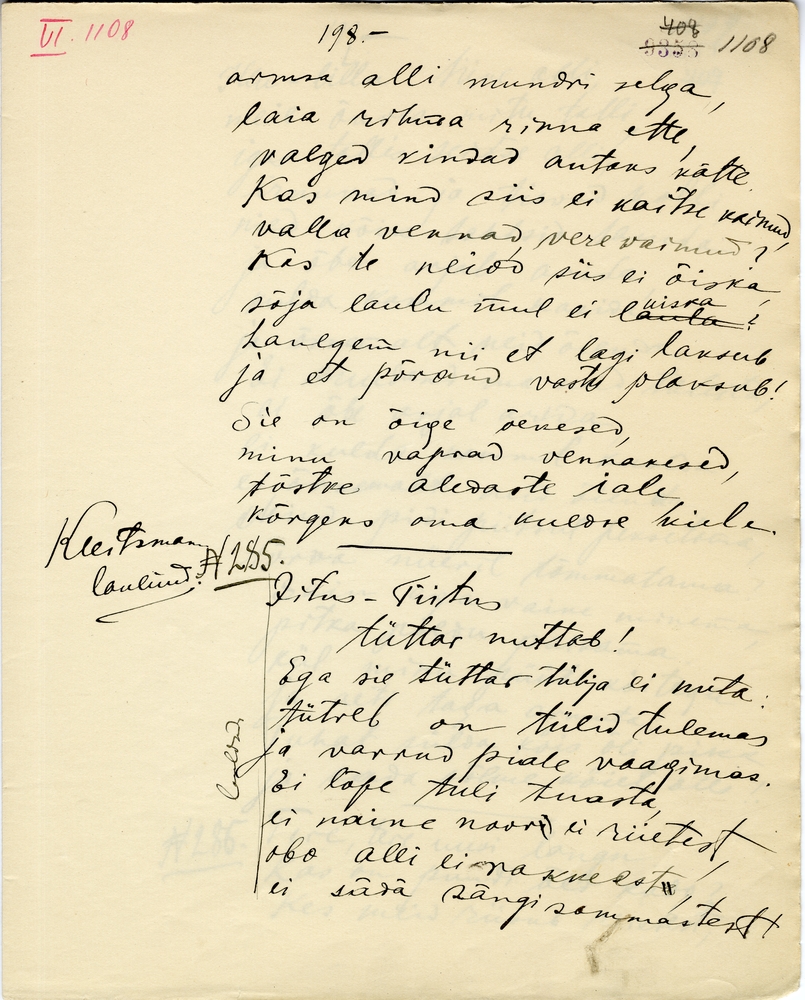 VI. 1108
198.-
408
9358 1108
armsa alli mundri selga,
laia rihma rinna ette,
valged kindad autaks kätte.
Kas mind siis ei kaitse kaimud,
valla vennad, vere vaimud?
Kas te neiod siis ei õiska,
sõja laulu mul ei laula? uiska
Laulgem nii et lagi laksub
ja et põrand vastu plaksub!
Sie on õige õekesed,
minu vaprad vennakesed,
tõstke aledaste iale
kõrgeks oma kuldse hiele.
Kleitsmann
laulnud.
# 285.
Titus-Tiitus
tüttar nuttab!
Ega sie tüttar tühja ei nuta:
tütreb on tülid tulemas
ja varrud piale vaagimas.
Ei lõpe tuli tuasta,
ei naine noori ei riietest,
obo alli ei rakkeest,
ei südä sängi sammastest!
lauldud
# 286.